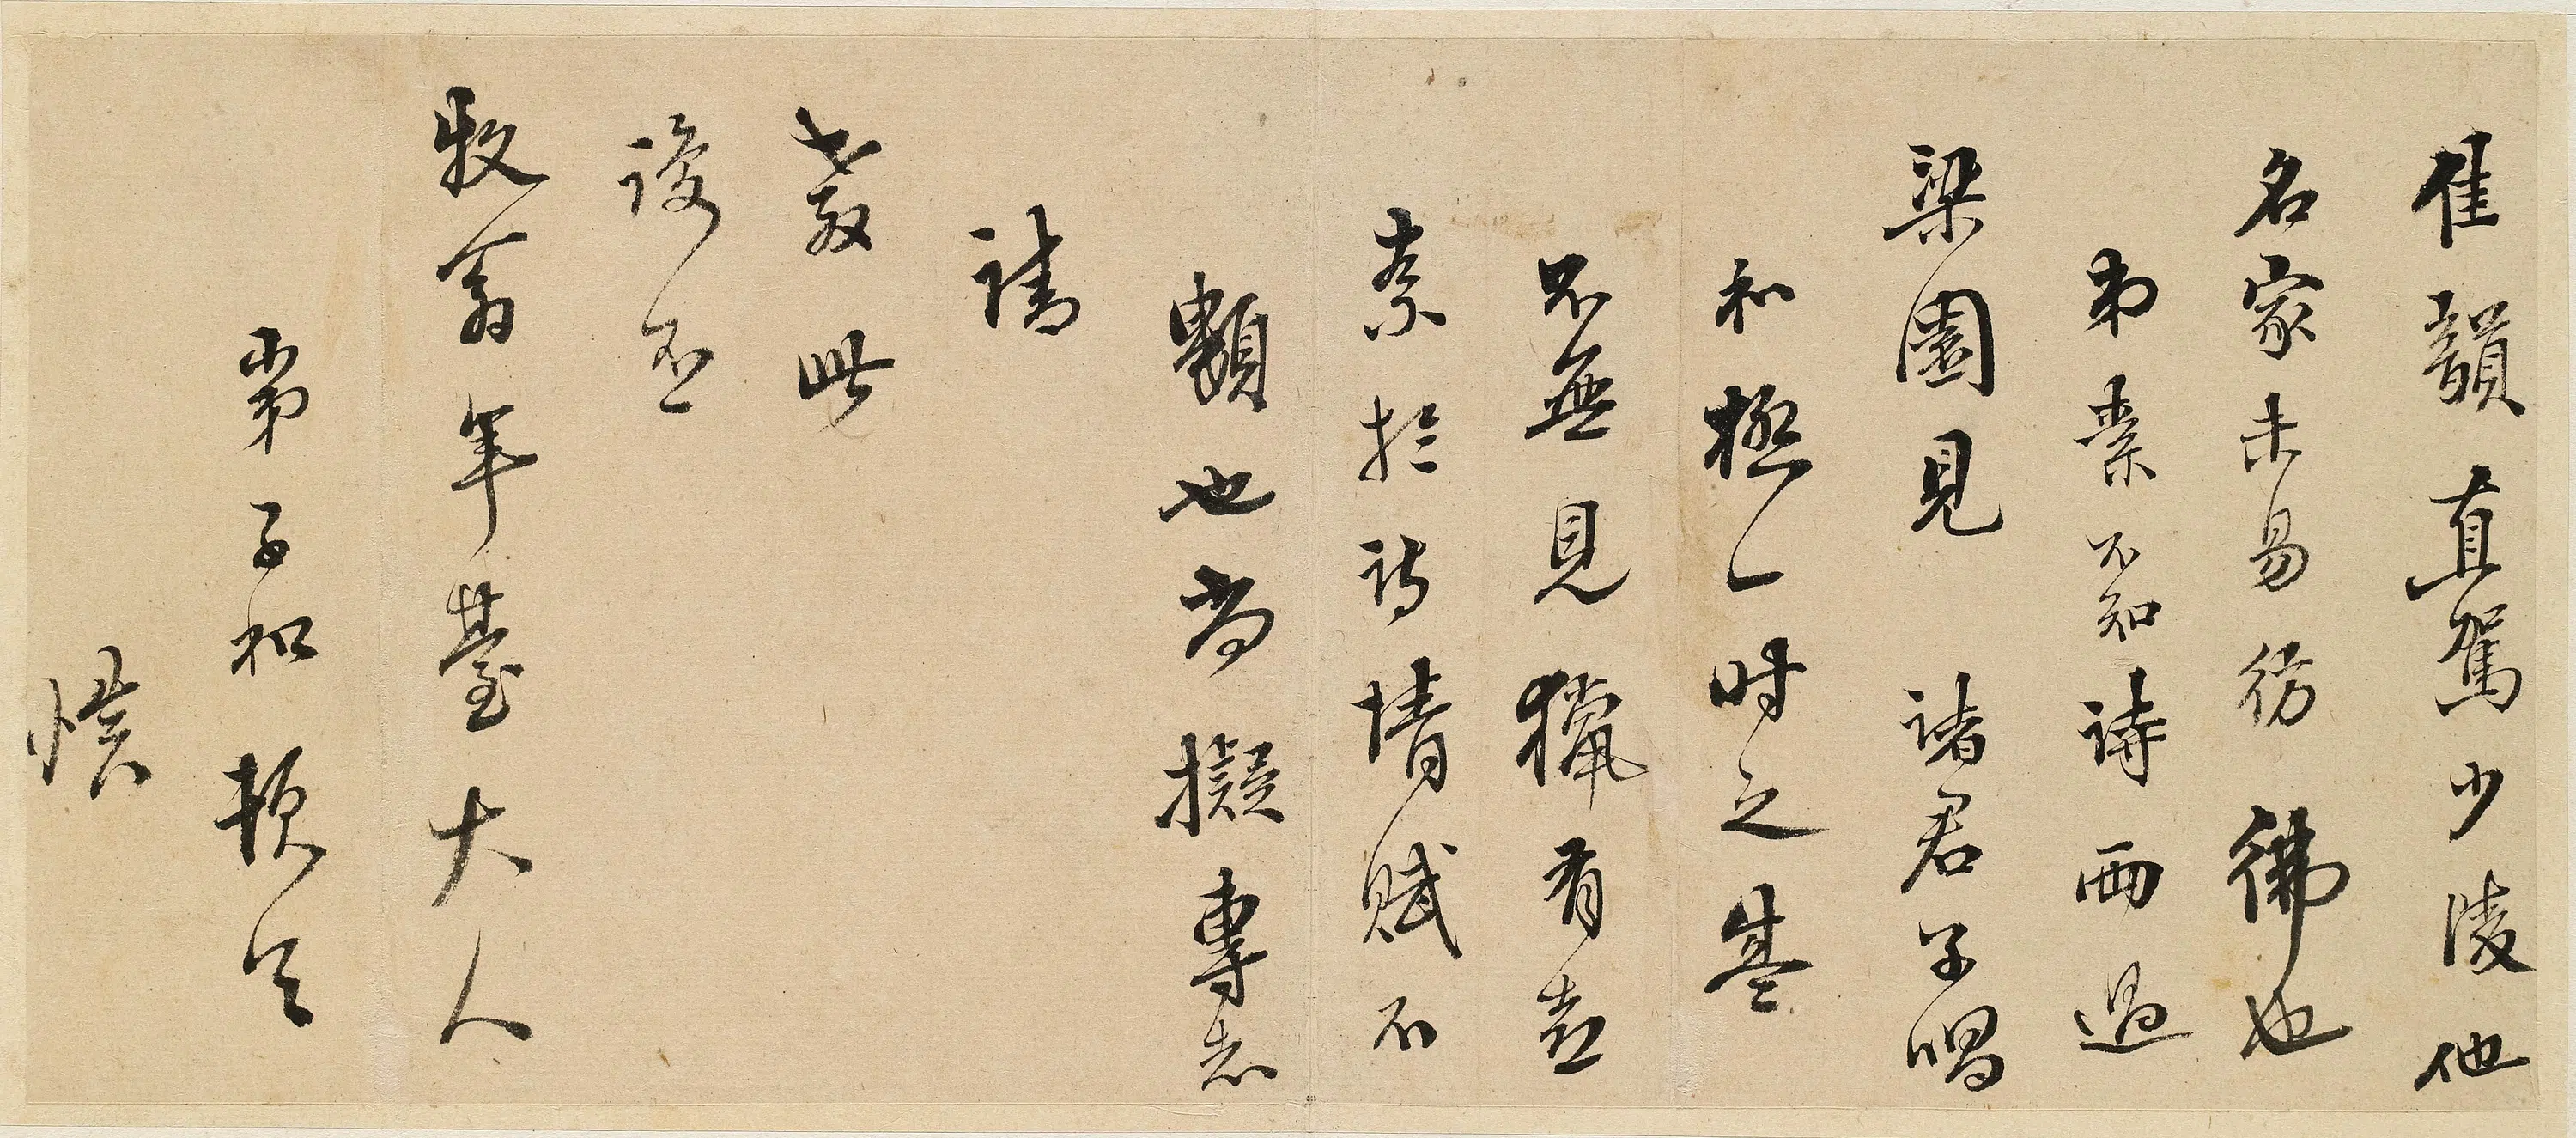 佳韻直駕少陵他
名家未易彷彿也
弟素不知詩而過
梁園見諸君子唱
和極一時之盛
不無見獵有喜
奈於詩情賦不
類也尚擬專志
請
教此
謢不
牧翁年臺大人
弟子和頓首
慎